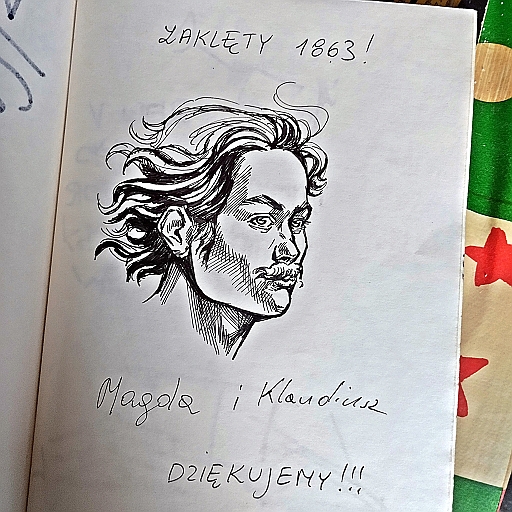 ZAKLĘTY 1863!
Magda i Klaudiusz
DZIĘKUJEMY!!!